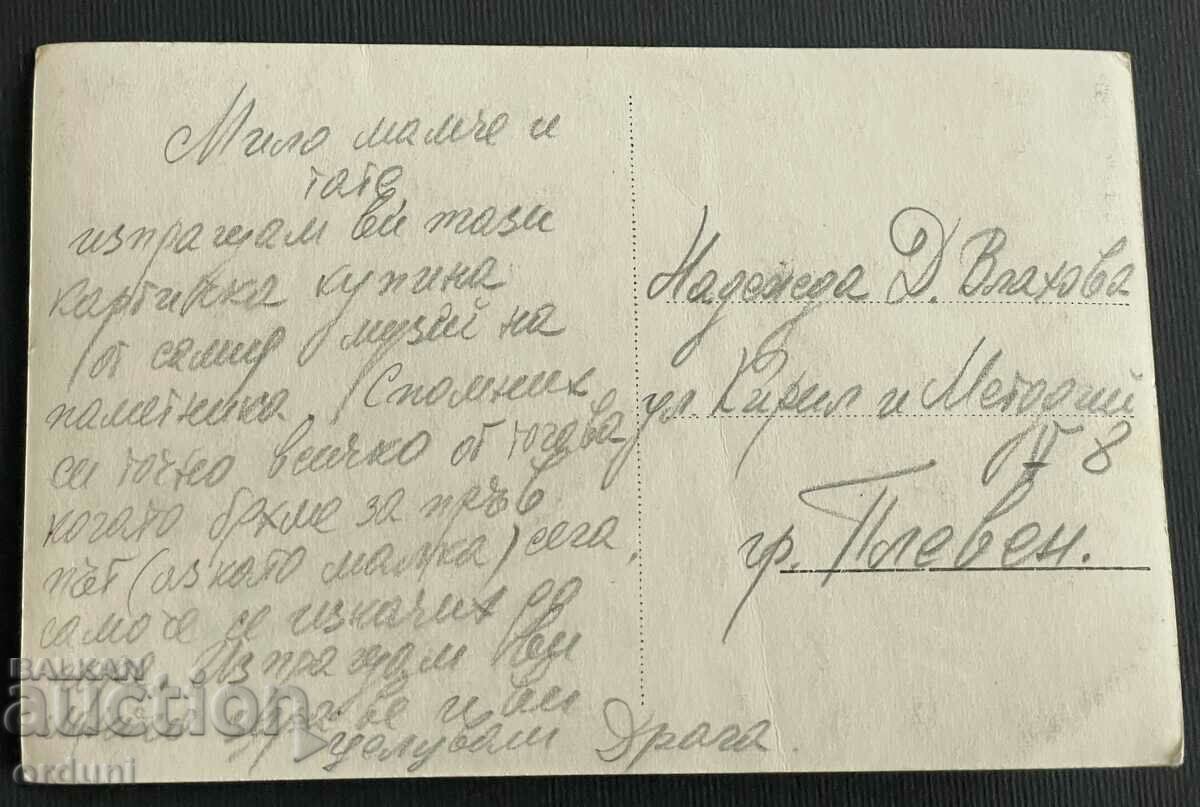 Мило мамче и
тате
изпращам ви тази
картичка купина
от самия музей на
паметника. Спомних
си точно всичко от тогава
когато бяхме за пръв
път (аз като малка) сега,
само че се изкачих до
Изпращам ви
и ви
целувам Драга.
Надежда Д. Влахова
ул Кирил и Методий
№ 8
гр. Плевен.
BALKAN
auction
orduni